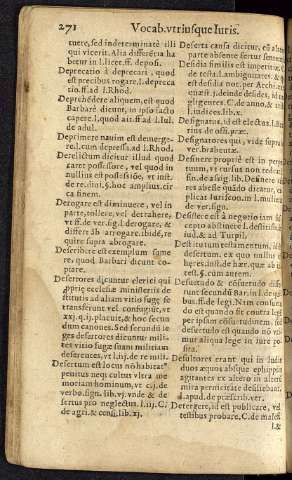 271 Vocab.vtriusque Iuris.
tuere, sed indeterminatè illi
qui vicerit. Alia differētia ha
betur in l. licet. ff. deposi.
Deprecatio à deprecari, quod
est precibus rogare. l. depreca
tio. ff. ad l. Rhod.
Deprehēdere aliquem, est quod
Barbarè dicunt, in ipso facto
capere. l. quod ait. ff. ad l. Iul.
de adul.
Deprimere nauim est demerge-
re. l. cum depressa. ad l. Rhod.
Derelictum dicitur illud quod
caret possessore, vel quod in
nullius est possessiōe, vt insti.
de re. diui. §. hoc amplius. cir
ca finem.
Derogare est diminuere, vel in
parte, tollere, vel detrahere,
vt ff. de ver. sig. l. derogare, &
differt ab arrogare. ibidē, re
quire supra abrogare.
Describere est exemplum sume
re, quod Barbari dicunt co-
piare.
Desertores dicuntur clerici qui
propriæ ecclesiæ ministeriis de
stitutis ad aliam vitio fugę se
transferunt vel confugiūt, vt
xxj. q. ij. placuit, & hoc secun
dum canones. Sed secundū le
ges desertores dicuntur mili-
tes vitio fugæ suam militiam
deserentes, vt l. iij. de re mili.
Desertum est locus nō habitat⁹
penitus neq; cultus vltra me
moriam hominum, vt C. de
verbo. sign. lib. vj. vnde & de
sertus pro neglectus. l. ij. C.
de agri. & cens. lib. xj.
Deserta causa dicitur, cū altera
parte absente sertur sententia.
Desidia similis est imperitiæ,
de testa. l. ambiguitates. &
est desidia nor. per Archi.
quæst. j. deinde desides, id
gligentes. C. de anno. & tri
l. iudices. lib. x.
Designatus, id est electus. l.
rius de offi. præt.
Designatores qui, vide supra
ver. brabeutæ.
Definere propriè est in perpe-
tuum, vt cū sua non redeat
fin. de a sig. lib. Definere in
res abesse quādo dicitur, ex-
plicat Iurisc. in l. mulieris
de ver. sign.
Desistere est à negotio iam sus
cepto abstinere l. destitisse. ff.
iud. & ad Turpil.
Destitutum testamentum, id
desertum, ex quo nullus est
hæres. instit. de hær. quæ ab in
test. §. rum autem.
Desuetudo & consuetudo diffe-
runt secundū Bar. in l. de qui-
bus. ff. de legi. Nam consuetu
do est quando fit contra legē
per istum cōsuetudinem, sed
desuetudo est quando nō vti
mur aliqua lege in iure po-
sita.
Desultores erant qui in ludis
duos æquos absque ephippiis
agitantes ex altero in alterū
mira pernicitate desiliebant.
l. apud. de præscrib. ver.
Detergere, id est publicare, vel
testibus probare. C. de males
l. &